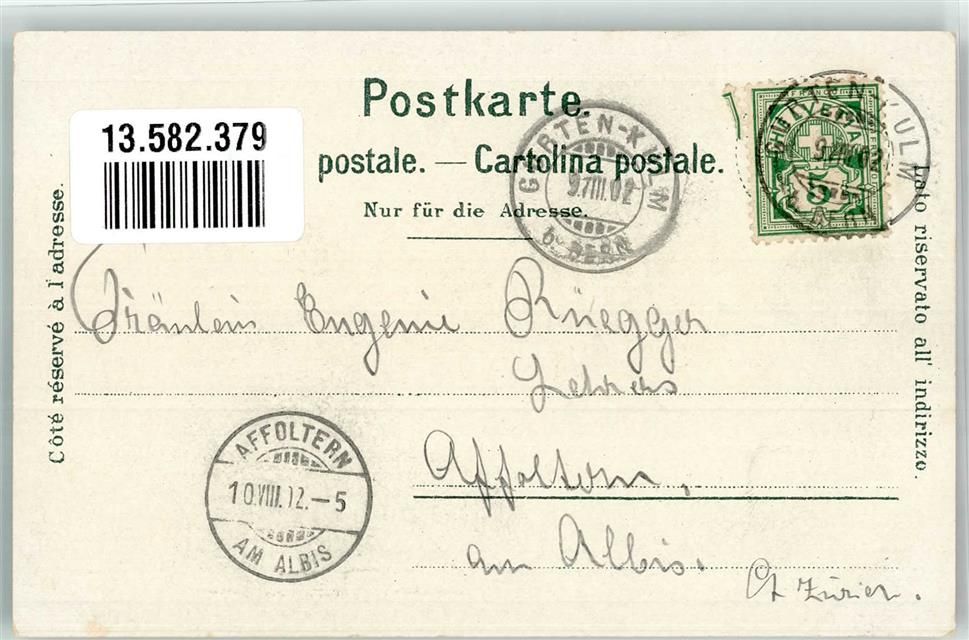 Postkarte.
13.582.379
postale. — Cartolina postale.
Nur für die Adresse.
GURTEN-KULM
9.VIII.02
b. BERN
FRANCO
5
Côté réservé à l'adresse.
Lato riservato all' indirizzo.
Fräulein Eugenie Rüegger
Lehrers
Affoltern,
am Albis.
Ct Zürich.
AFFOLTERN
10.VIII.02.–5
AM ALBIS